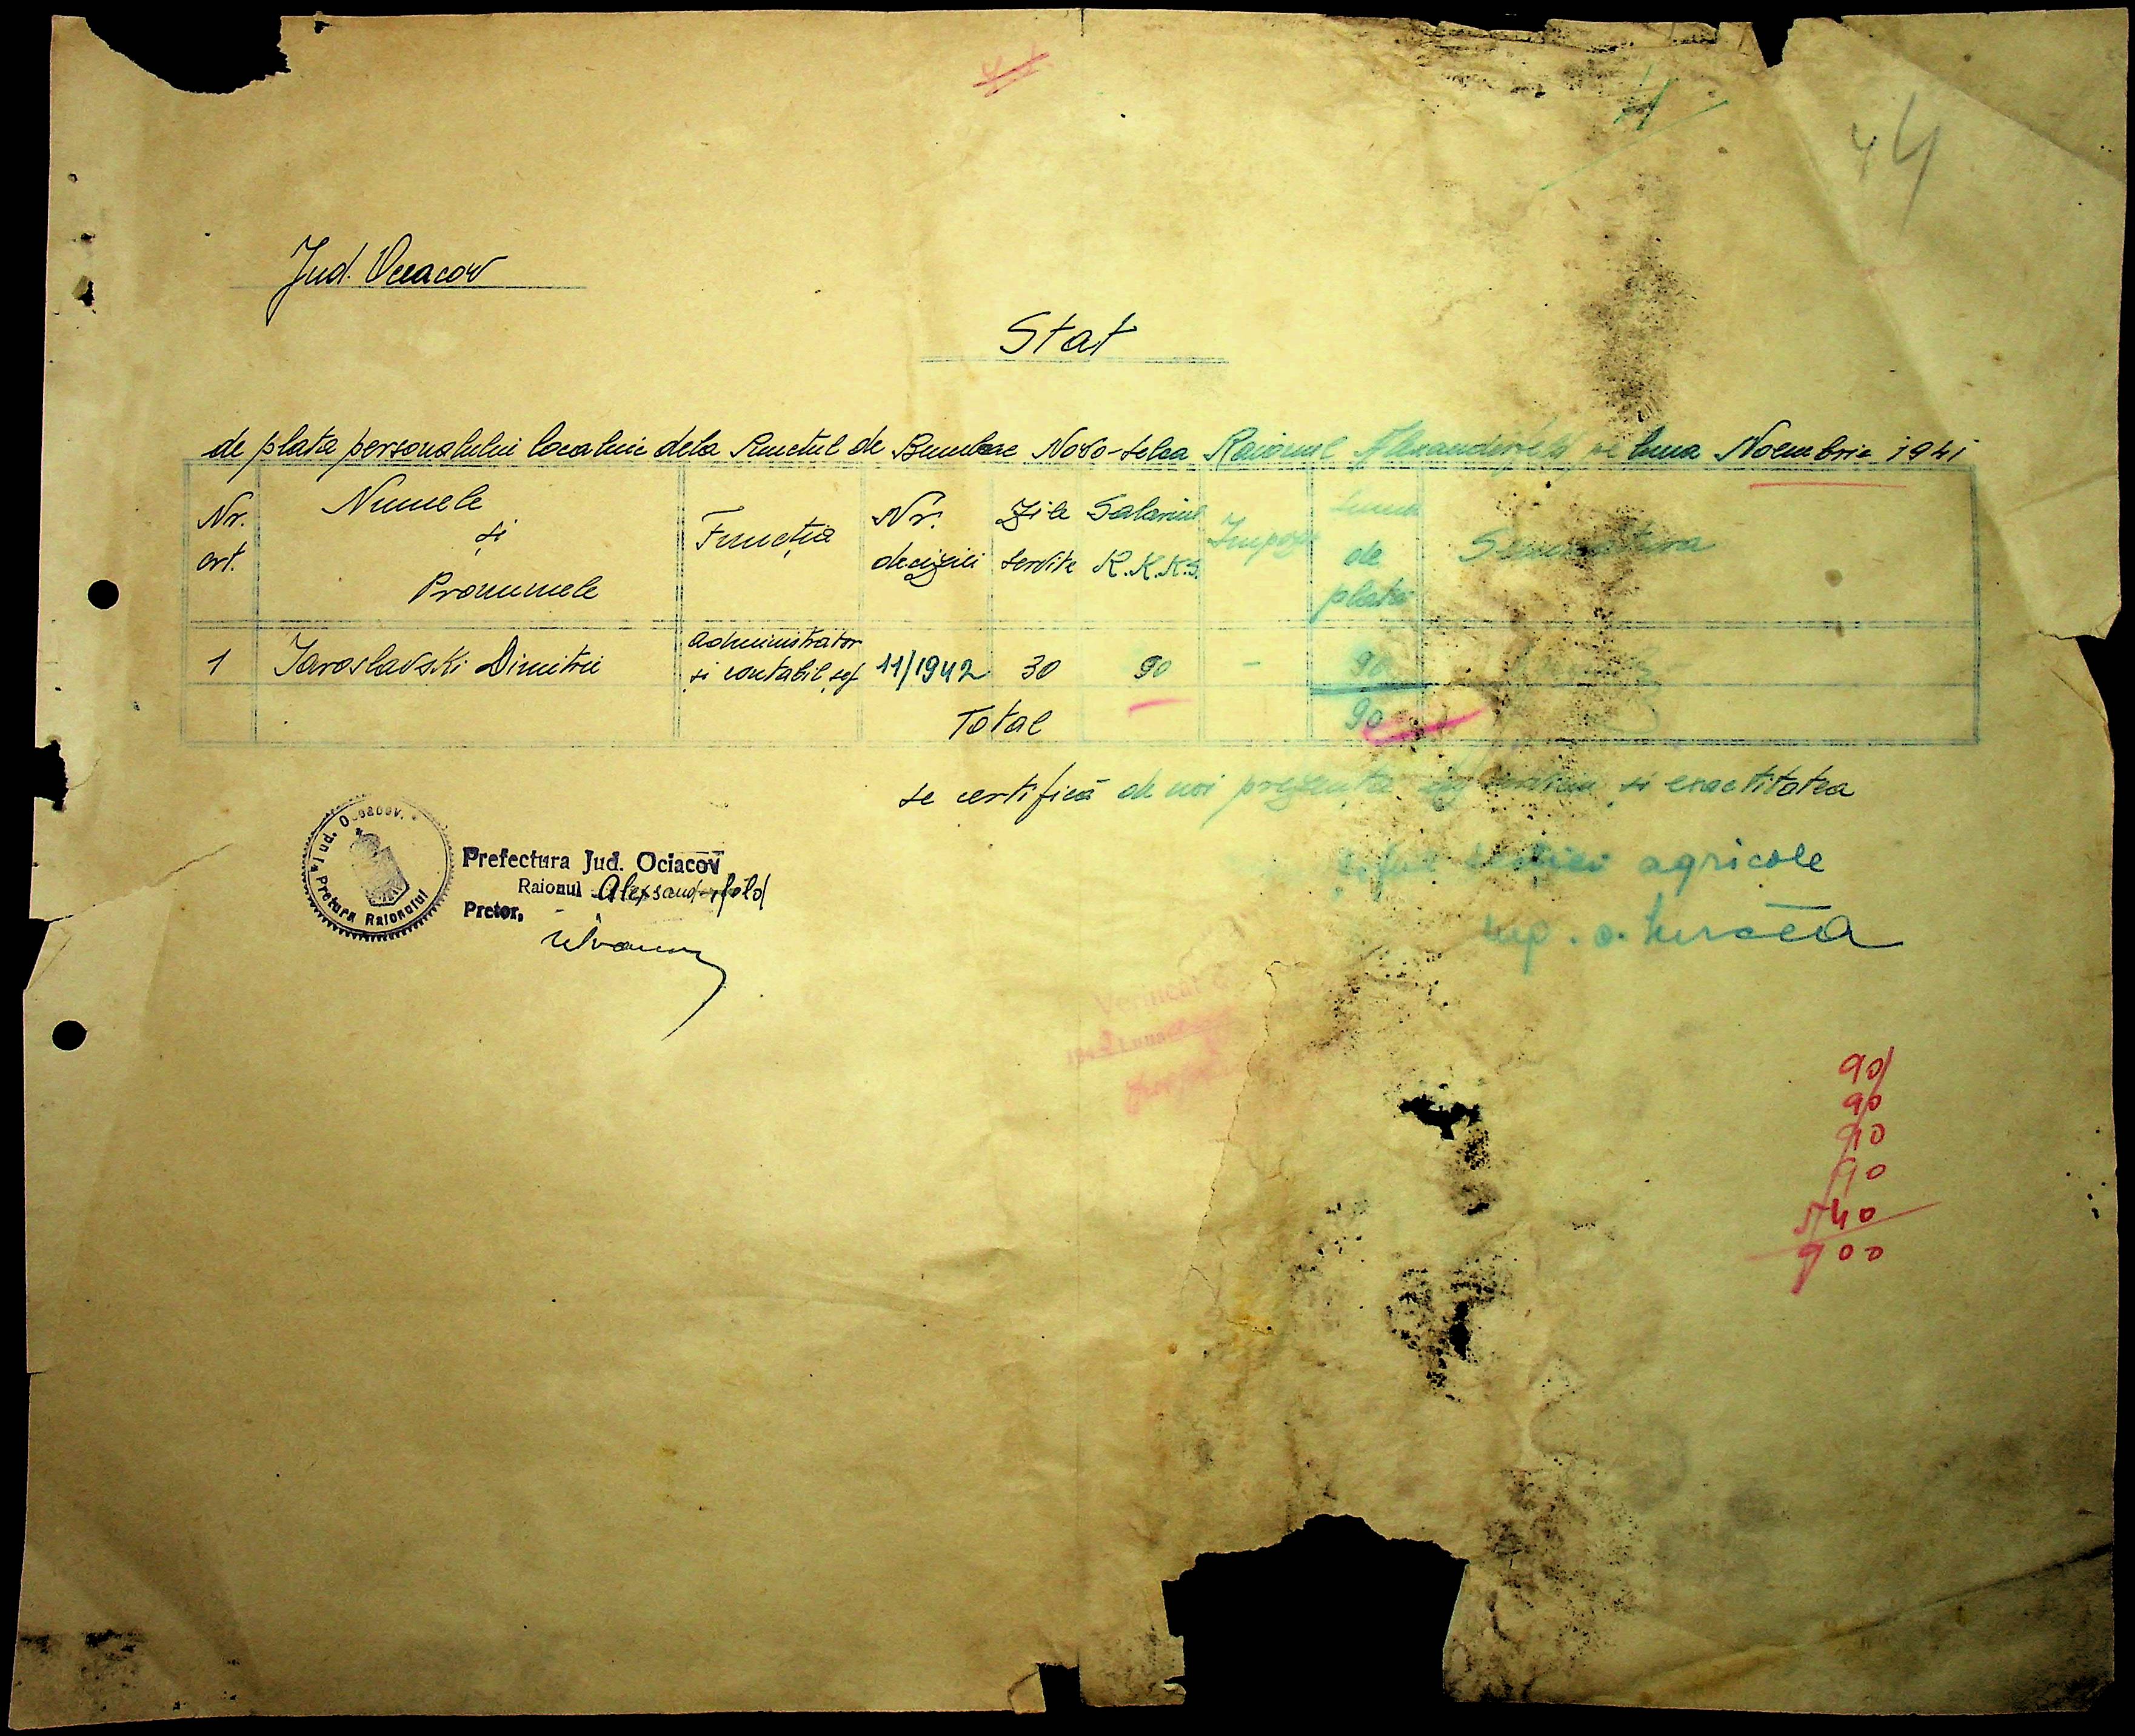 44
Jud. Oceacov
Stat
de plata personalului localnic dela Punctul de Bumbac Novo-Selca Raionul pe luna Noembrie 1941
Nr. crt. Numele și Pronumele Funcția Nr. deciziei Zile servite Salariul R.K.K.S. Impozit Suma de plata Semnatura
1 Iaroslavski Dimitrii administrator și contabil șef 11/1942 30 90 - 90
Total 90
se certifică de noi prezenta în serviciu și exactitatea
Șeful secției agricole
Jud. Ociacov.
Pretura Raionului
Prefectura Jud. Ociacov
Raionul Alexsanderfeld
Pretor,
Verificat
90
90
90
90
540
900